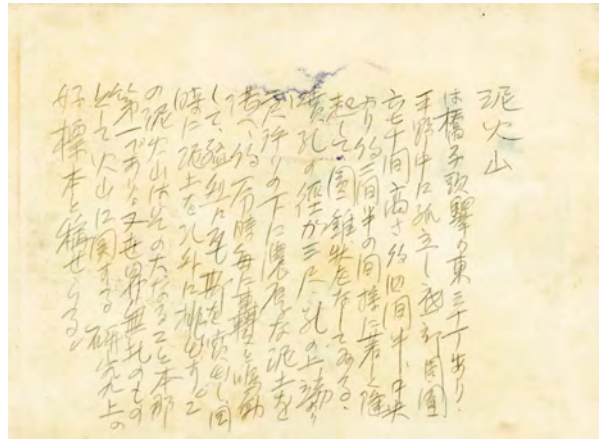 泥火山
は橋子頭驛の東三十丁あり、
平野中に孤立し 周圍
六七十間高さ約四間半、中央
より約三間半の間は著く隆
起して圓錐狀をなしてゐる、
噴孔の徑が三尺、孔の上端より
尺許りの下に濃厚な泥土を
湛へ約一 時每に轟轟と鳴動
して、 瓦斯を噴出し同
時に泥土を孔外に排出して
の泥火山はその大なること本邦
第一であり又世界無比のもの
として火山に関する研究上の
好標本と稱せらる。